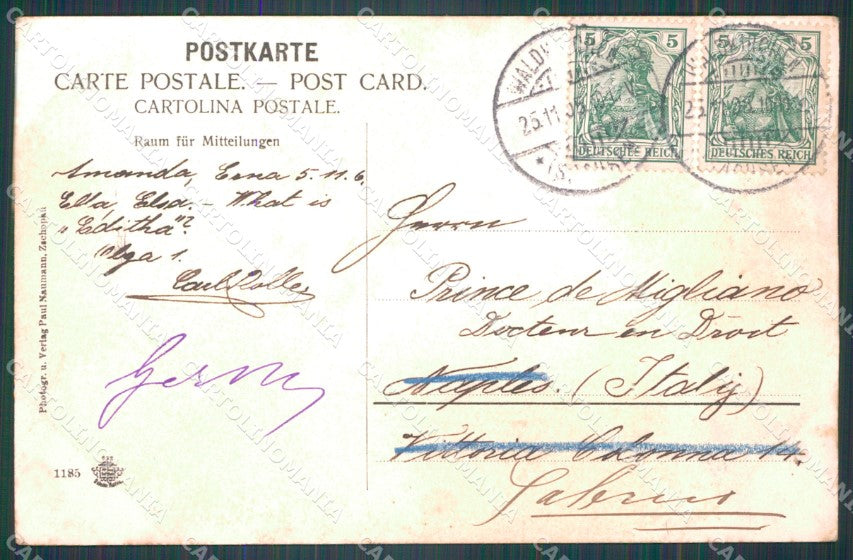 POSTKARTE
CARTE POSTALE. — POST CARD.
CARTOLINA POSTALE.
Raum für Mitteilungen
Amanda, Erna 5. 11. 6.
Ella, Elsa. - What is
"Editha"?
Olga 1.
Carl Rolle
Photogr. u. Verlag Paul Naumann, Zschopau
1185
5 5
DEUTSCHES REICH
5 5
DEUTSCHES REICH
WALDKIRCHEN
25.11.05
Herrn
Prince de Migliano
Docteur en Droit
Naples. (Italy)
Vittoria Colonna 14.
Salerno
CARTOLINOMANIA